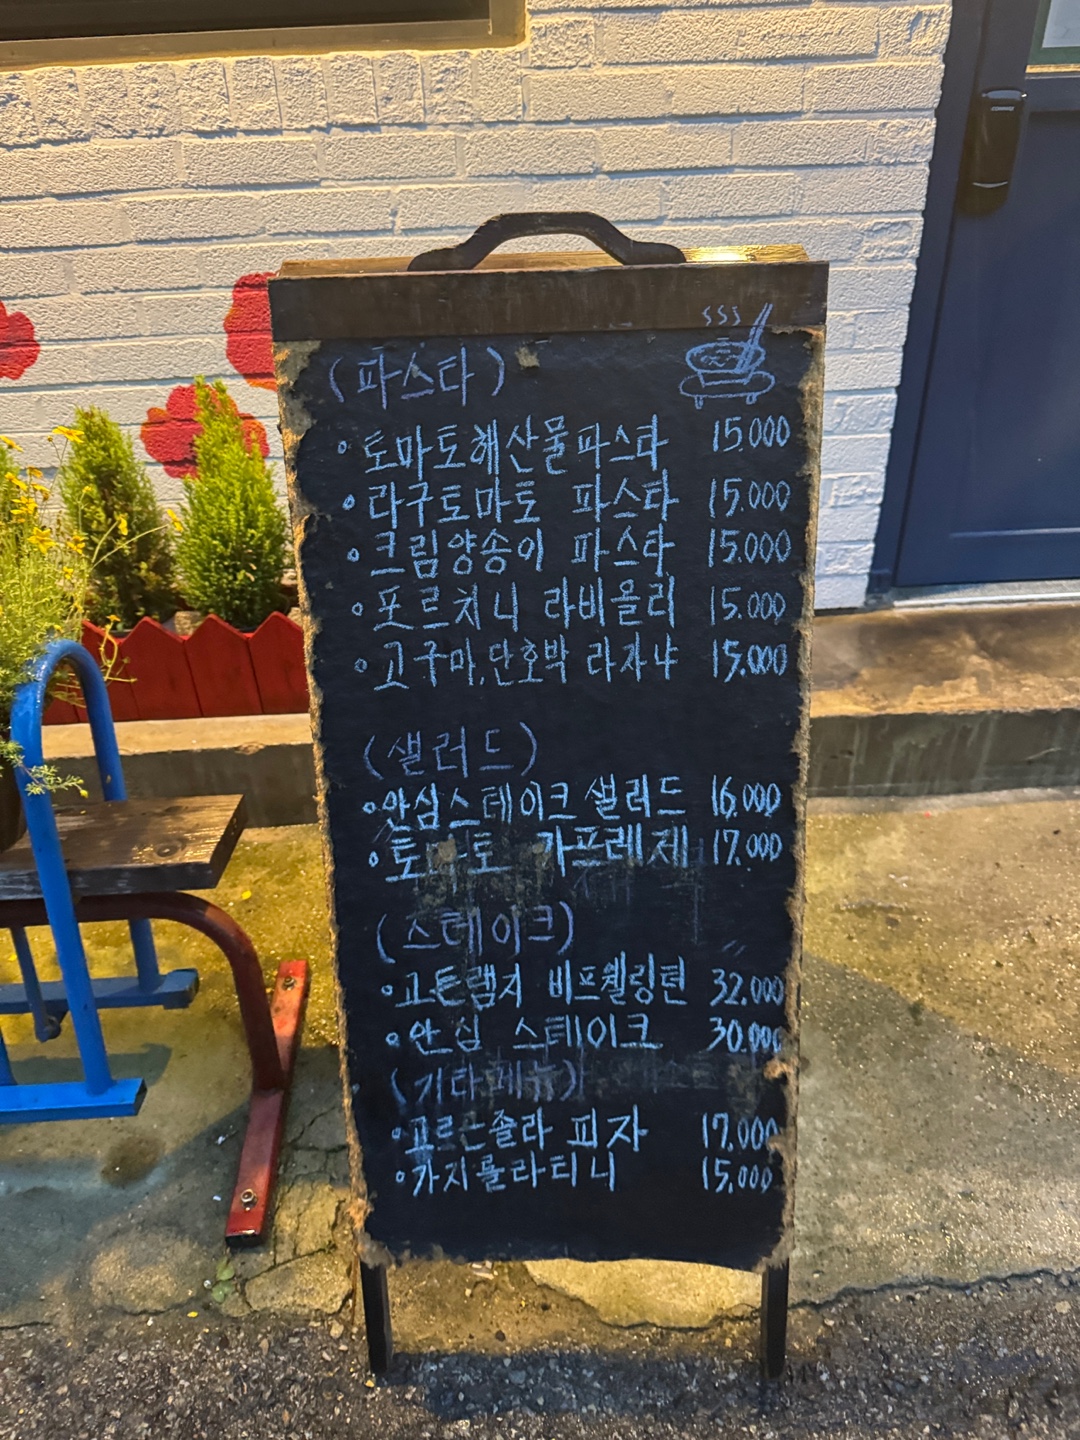 (파스타)
◦토마토해산물파스타 15.000
◦라구토마토 파스타 15.000
◦크림양송이 파스타 15.000
◦포르치니 라비올리 15.000
◦고구마,단호박 라자냐 15.000
(샐러드)
◦안심스테이크 샐러드 16.000
◦토마토 가프레제 17.000
(스테이크)
◦고든램지 비프웰링턴 32.000
◦안심 스테이크 30.000
(기타메뉴)
◦고르곤졸라 피자 17.000
◦가지롤라티니 15.000